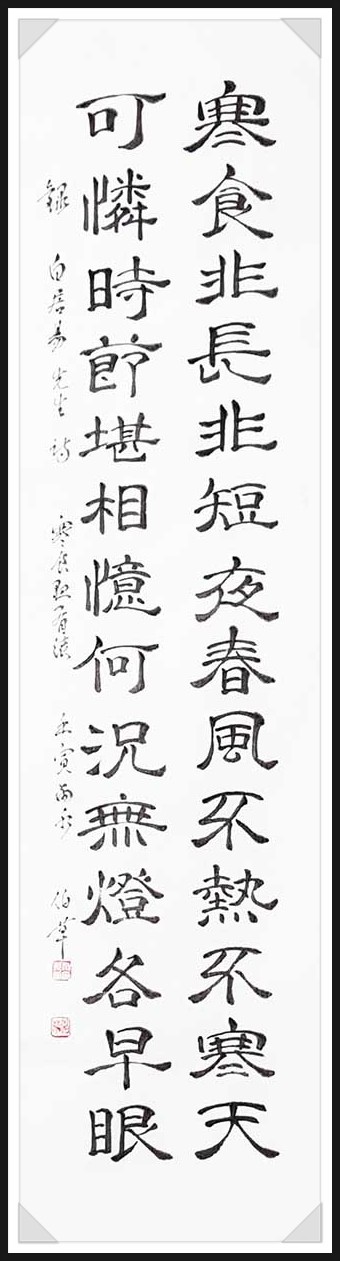 寒食非長非短夜春風不熱不寒天
可憐時節堪相憶何況無燈各早眠
錄 白居易先生詩 寒食夜有懷 壬寅雨水